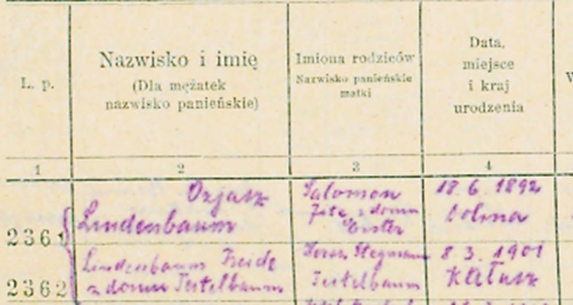 L. p.
Nazwisko i imię
(Dla mężatek
nazwisko panieńskie)
Imiona rodziców
Nazwisko panieńskie
matki
Data,
miejsce
i kraj
urodzenia
1
2
3
4
236
Ozjasz
Lindenbaum
Salomon
z domu
18. 6. 1892
2362
Lindenbaum
z domu Teitelbaum
Teitelbaum
8 3. 1901
Kałusz